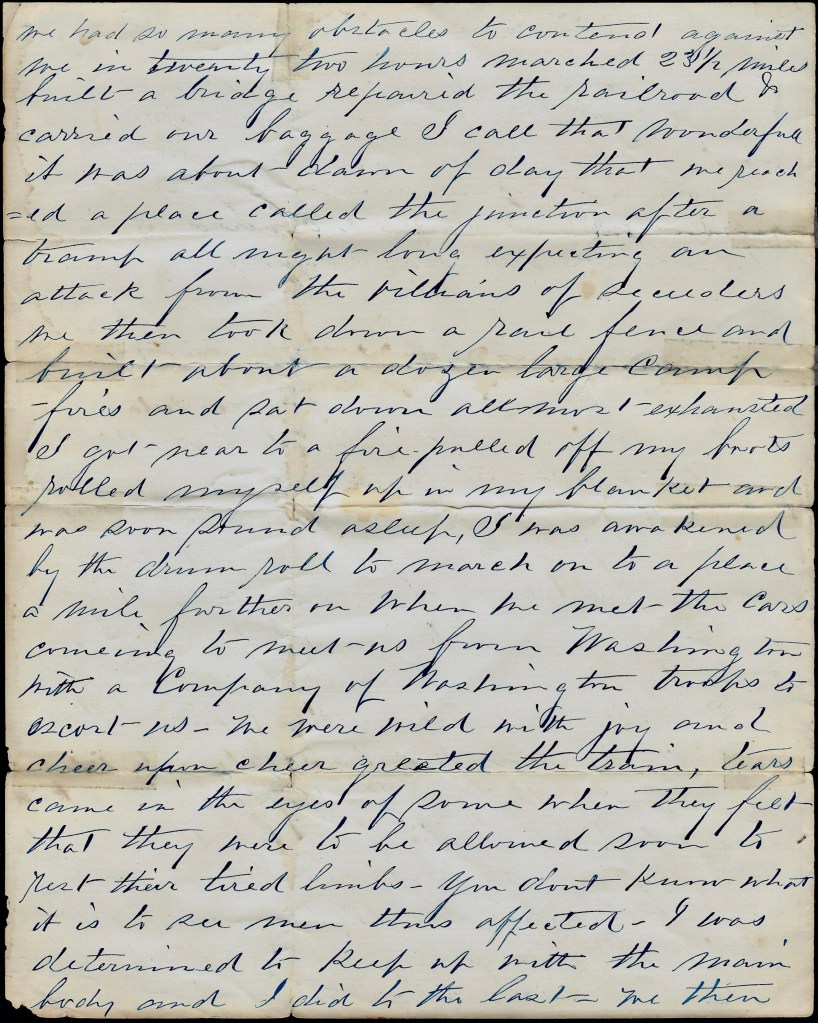 we had so many obstacles to contend against
we in twenty two hours marched 23 1/2 miles
built a bridge repaired the railroad &
carried our baggage I call that wonderfull
it was about dawn of day that we reach
=ed a place called the junction after a
tramp all night long expecting an
attack from the villians of seceeders
we then took down a rail fence and
built about a dozen large camp
-fires and sat down allmost exhausted
I got near to a fire pulled off my boots
rolled myself up in my blanket and
was soon sound asleep, I was awakened
by the drum roll to march on to a place
a mile further on when we met the cars
comeing to meet us from Washington
with a Company of Washington troops to
escort us - we were wild with joy and
cheer upon cheer greeted the train, tears
came in the eyes of some when they felt
that they were to be allowed soon to
rest their tired limbs - You dont know what
it is to see men thus affected - I was
determined to keep up with the main
body and I did to the last = we then